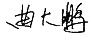 曲大鹏